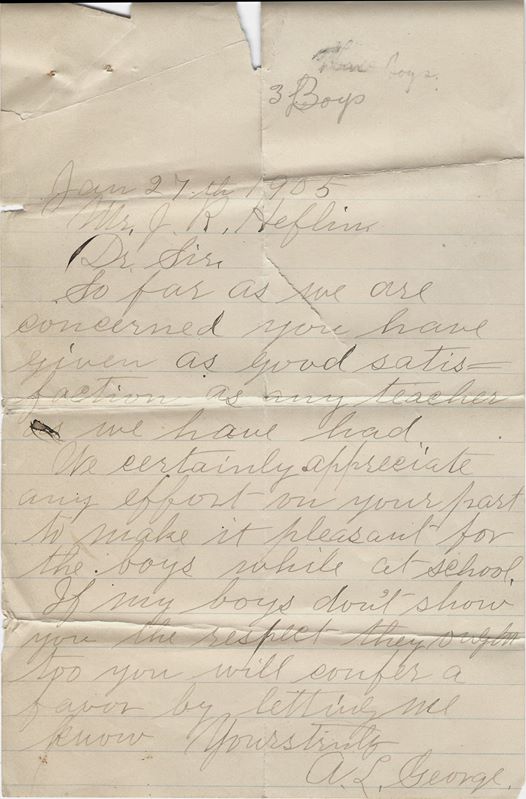 boys.
3 Boys
Jan 27th 1905
Mr. J. R. Heflin.
Dr. Sir.
So far as we are
concerned you have
given as good satis=
faction as any teacher
as we have had
We certainly appreciate
any effort on your part
to make it pleasant for
the boys while at school.
If my boys don't show
you the respect they ought
too you will confer a
favor by letting me
know Yourstruly
A. L. George.